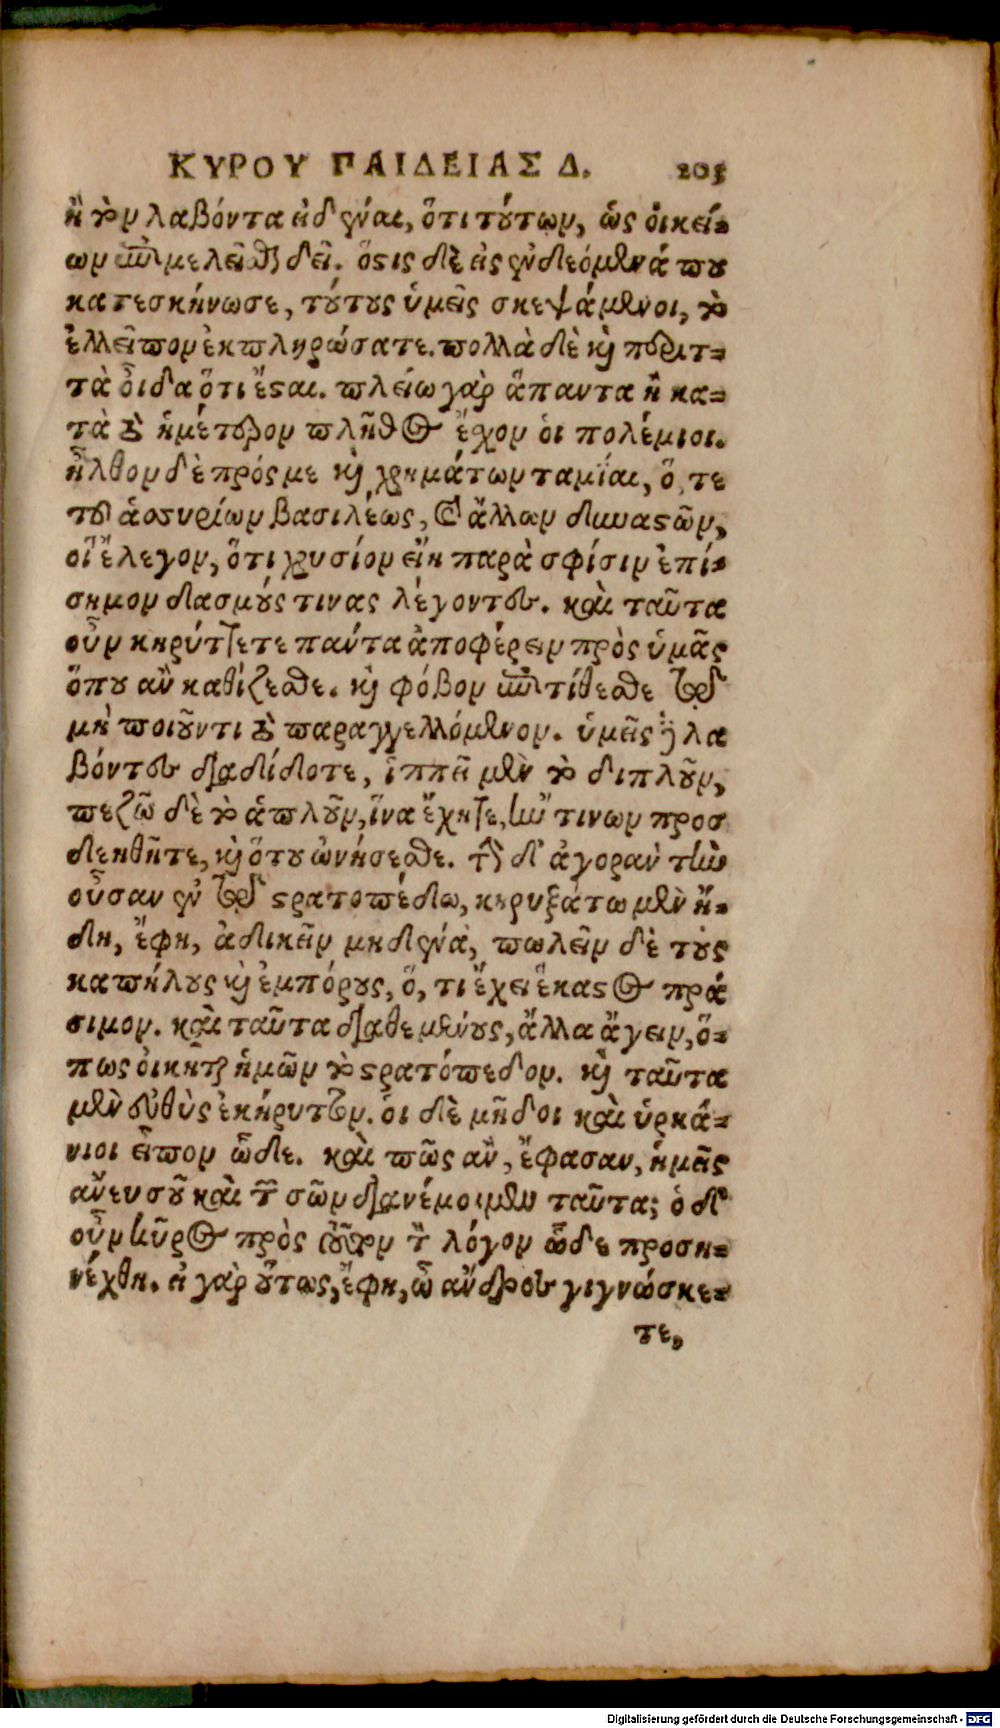 ΚΥΡΟΥ ΠΑΙΔΕΙΑΣ Δ. 205
ἢ τὸν λαβόντα εἰδέναι, ὅτι τούτων, ὡς οἰκεί-
ων ἐπιμελεῖσθαι δεῖ. ὅστις δὲ εἰς ἐνδεόμενά που
κατεσκήνωσε, τούτους ὑμεῖς σκεψάμενοι, τὸ
ἐλλεῖπον ἐκπληρώσατε. πολλὰ δὲ καὶ περιτ-
τὰ οἶδα ὅτι ἔσται. πλείω γὰρ ἅπαντα ἢ κα-
τὰ τὸ ἡμέτερον πλῆθος ἔχον οἱ πολέμιοι.
ἦλθον δὲ πρός με καὶ χρημάτων ταμίαι, ὅ, τε
τοῦ ἀσσυρίων βασιλέως, καὶ ἄλλων δυναστῶν,
οἳ ἔλεγον, ὅτι χρυσίον εἴη παρὰ σφίσιν ἐπί-
σημον δασμούς τινας λέγοντες. καὶ ταῦτα
οὖν κηρύττετε πάντα ἀποφέρειν πρὸς ὑμᾶς
ὅπου ἂν καθίζεσθε. καὶ φόβον ἐπιτίθεσθε τῷ
μὴ ποιοῦντι τὸ παραγγελλόμενον. ὑμεῖς δὲ λα
βόντες διαδίδοτε, ἱππεῖ μὲν τὸ διπλοῦν,
πεζῷ δὲ τὸ ἁπλοῦν, ἵνα ἔχητε, ἤν τινων προσ
δεηθῆτε, καὶ ὅτου ὠνήσεσθε. τὴν δ' ἀγορὰν τὴν
οὖσαν ἐν τῷ στρατοπέδῳ, κηρυξάτω μὲν ἤ-
δη, ἔφη, ἀδικεῖν μηδένα, πωλεῖν δὲ τοὺς
καπήλους καὶ ἐμπόρους, ὅ, τι ἔχει ἕκαστος πρά
σιμον. καὶ ταῦτα διαθεμένους, ἄλλα ἄγειν, ὅ-
πως οἰκῆται ἡμῶν τὸ στρατόπεδον. καὶ ταῦτα
μὲν εὐθὺς ἐκήρυττον. οἱ δὲ μῆδοι καὶ ὑρκά-
νιοι εἶπον ὧδε. καὶ πῶς ἂν, ἔφασαν, ἡμεῖς
ἄνευ σοῦ καὶ τῶν σῶν διανέμοιμεν ταῦτα; ὁ δ'
οὖν κῦρος πρὸς τοῦτον τὸν λόγον ὧδε προση-
νέχθη. εἰ γὰρ οὕτως, ἔφη, ὦ ἄνδρες γιγνώσκε-
τε,
Digitalisierung gefördert durch die Deutsche Forschungsgemeinschaft - DFG